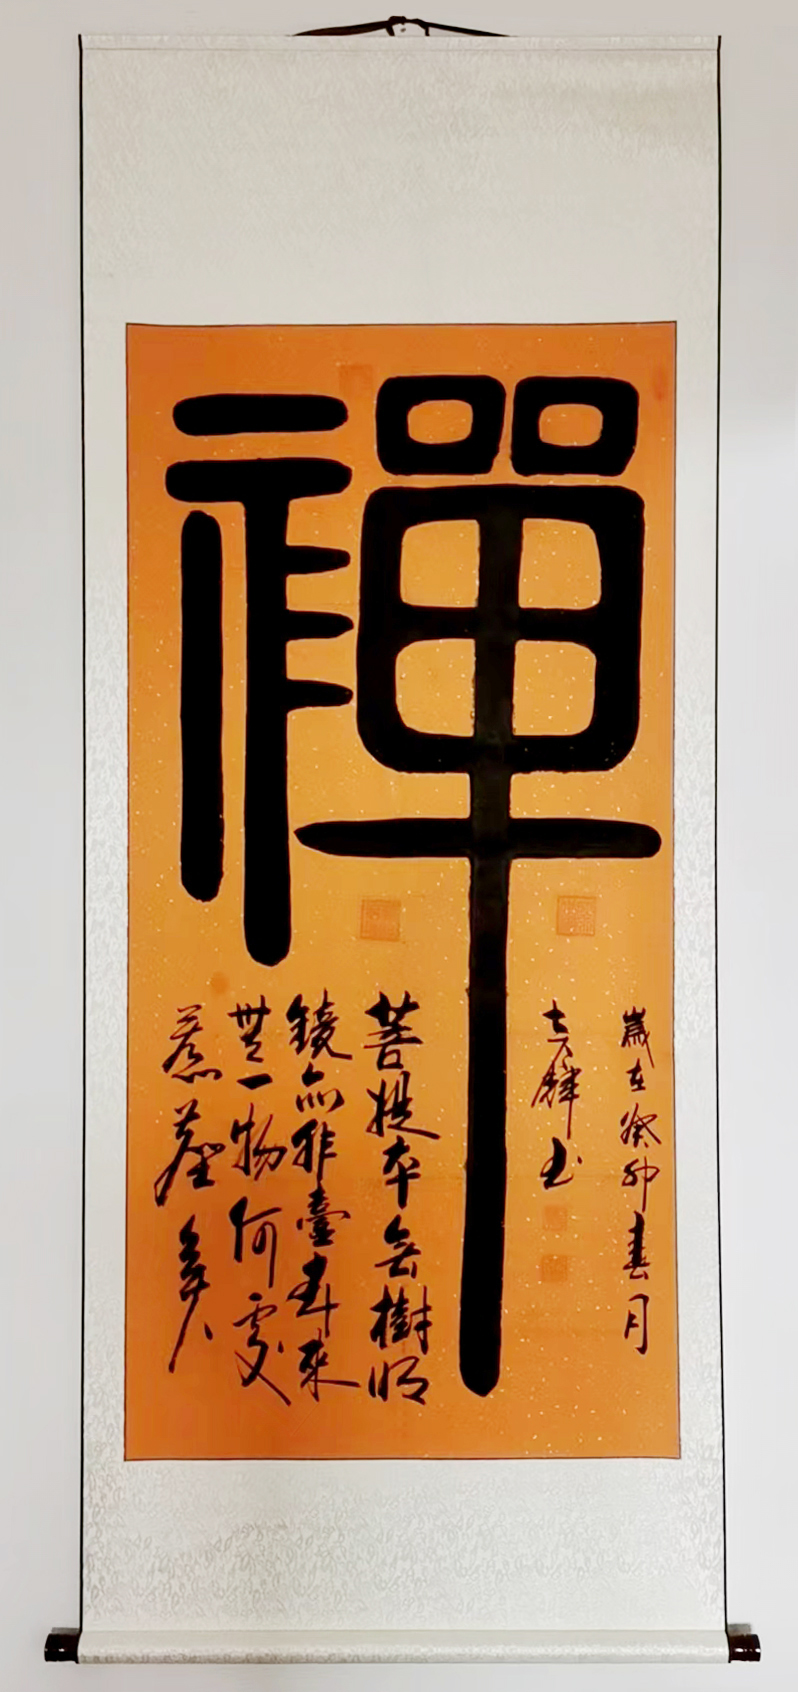 禪
歲在癸卯春月
書
菩提本無樹明
鏡亦非臺本來
無一物何處
惹塵埃